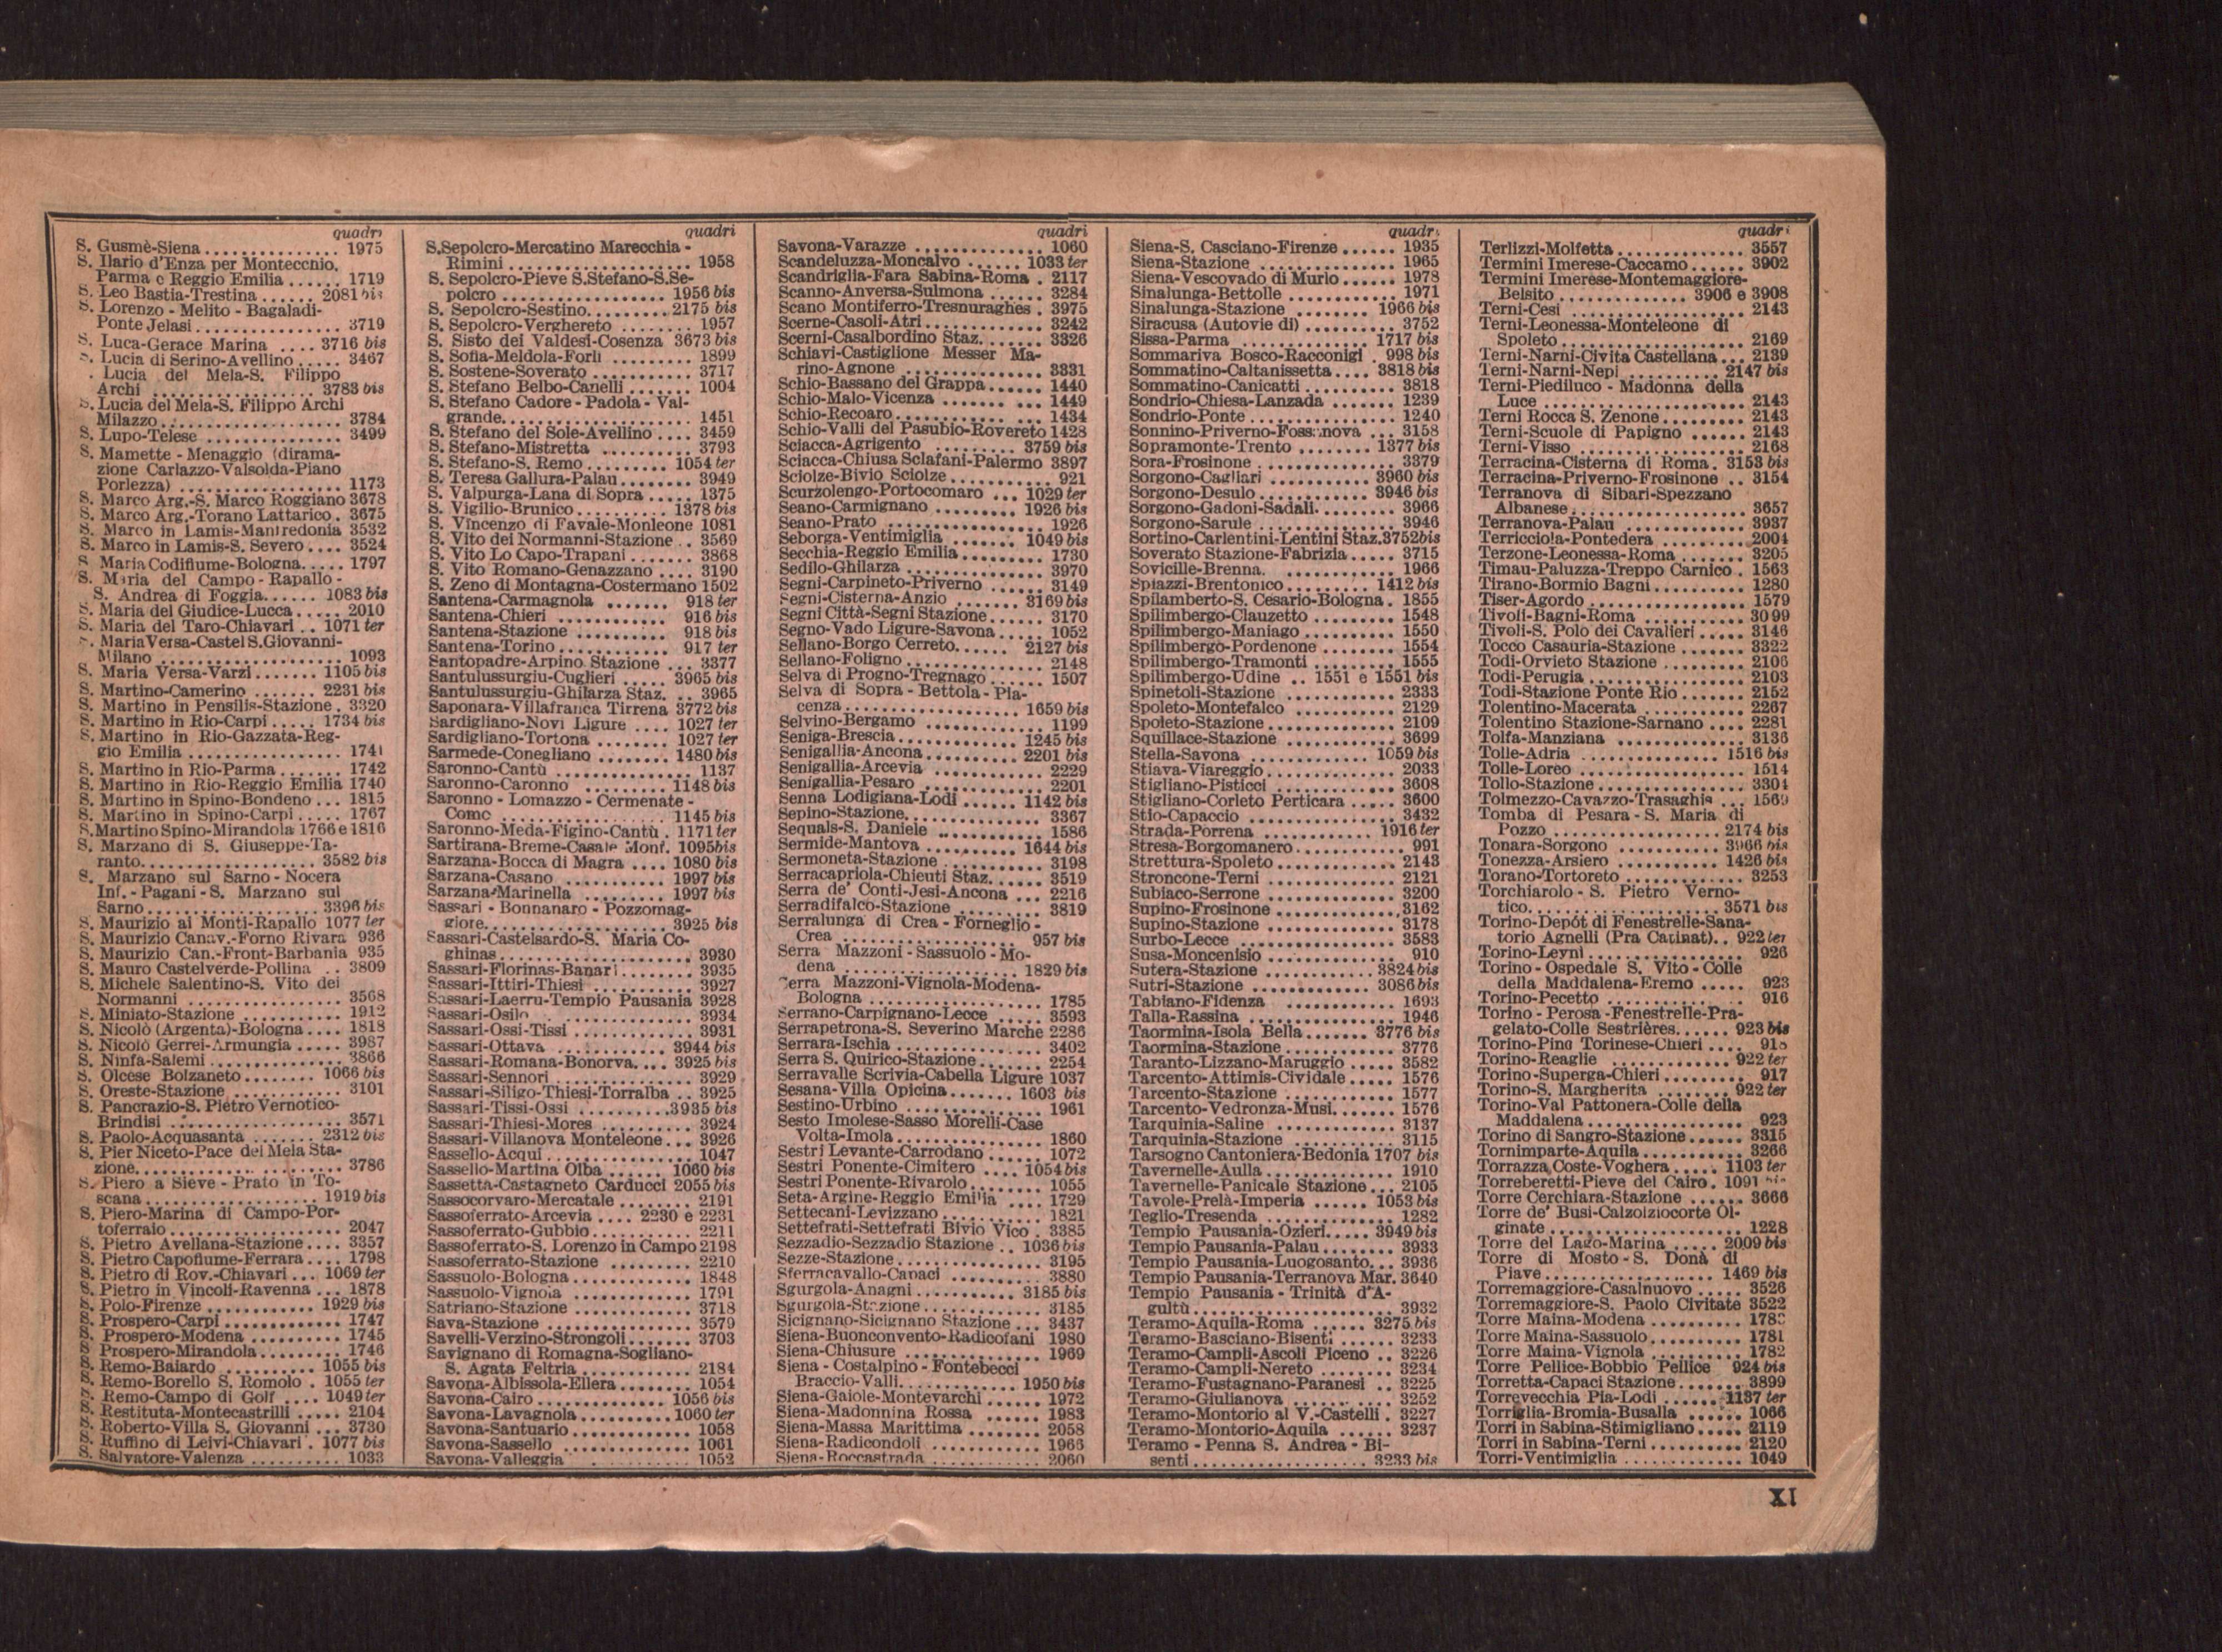 quadri
S. Gusmè-Siena ............... 1975
S. Ilario d'Enza per Montecchio,
Parma e Reggio Emilia ...... 1719
S. Leo Bastia-Trestina ...... 2081 bis
S. Lorenzo - Melito - Bagaladi-
Ponte Jelasi ............... 3719
S. Luca-Gerace Marina .... 3716 bis
S. Lucia di Serino-Avellino ..... 3467
. Lucia del Mela-S. Filippo
Archi .................. 3783 bis
S. Lucia del Mela-S. Filippo Archi
Milazzo .................... 3784
S. Lupo-Telese ............... 3499
S. Mamette - Menaggio (dirama-
zione Carlazzo-Valsolda-Piano
Porlezza) .................. 1173
S. Marco Arg.-S. Marco Roggiano 3678
S. Marco Arg.-Torano Lattarico . 3675
S. Marco in Lamis-Manfredonia 3532
S. Marco in Lamis-S. Severo .... 3524
S Maria Codifiume-Bologna..... 1797
S. Maria del Campo - Rapallo -
S. Andrea di Foggia...... 1083 bis
S. Maria del Giudice-Lucca ..... 2010
S. Maria del Taro-Chiavari .. 1071 ter
S. Maria Versa-Castel S.Giovanni-
Milano ..................... 1093
S. Maria Versa-Varzi ....... 1105 bis
S. Martino-Camerino ....... 2231 bis
S. Martino in Pensilis-Stazione . 3320
S. Martino in Rio-Carpi ..... 1734 bis
S. Martino in Rio-Gazzata-Reg-
gio Emilia .................. 1741
S. Martino in Rio-Parma ....... 1742
S. Martino in Rio-Reggio Emilia 1740
S. Martino in Spino-Bondeno ... 1815
S. Martino in Spino-Carpi ..... 1767
S.Martino Spino-Mirandola 1766 e 1816
S. Marzano di S. Giuseppe-Ta-
ranto.................... 3582 bis
S. Marzano sul Sarno - Nocera
Inf. - Pagani - S. Marzano sul
Sarno................... 3396 bis
S. Maurizio ai Monti-Rapallo 1077 ter
S. Maurizio Canav.-Forno Rivara 936
S. Maurizio Can.-Front-Barbania 935
S. Mauro Castelverde-Pollina .. 3809
S. Michele Salentino-S. Vito dei
Normanni ................. 3568
S. Miniato-Stazione ........... 1912
S. Nicolò (Argenta)-Bologna .... 1818
S. Nicolò Gerrei-Armungia ..... 3987
S. Ninfa-Salemi ............... 3866
S. Olcese Bolzaneto ........ 1066 bis
S. Oreste-Stazione ............ 3101
S. Pancrazio-S. Pietro Vernotico-
Brindisi ................... 3571
S. Paolo-Acquasanta ....... 2312 bis
S. Pier Niceto-Pace del Mela Sta-
zione....................... 3786
S. Piero a Sieve - Prato in To-
scana ................... 1919 bis
S. Piero-Marina di Campo-Por-
toferraio ................... 2047
S. Pietro Avellana-Stazione .... 3357
S. Pietro Capofiume-Ferrara .... 1798
S. Pietro di Rov.-Chiavari ... 1069 ter
S. Pietro in Vincoli-Ravenna ... 1878
S. Polo-Firenze ............ 1929 bis
S. Prospero-Carpi ............. 1747
S. Prospero-Modena .......... 1745
S. Prospero-Mirandola ......... 1746
S. Remo-Baiardo .......... 1055 bis
S. Remo-Borello S. Romolo . 1055 ter
S. Remo-Campo di Golf .... 1049 ter
S. Restituta-Montecastrilli ..... 2104
S. Roberto-Villa S. Giovanni ... 3730
S. Ruffino di Leivi-Chiavari . 1077 bis
S. Salvatore-Valenza .......... 1033
quadri
S.Sepolcro-Mercatino Marecchia -
Rimini ..................... 1958
S. Sepolcro-Pieve S.Stefano-S.Se-
polcro ................... 1956 bis
S. Sepolcro-Sestino.......... 2175 bis
S. Sepolcro-Verghereto ........ 1957
S. Sisto dei Valdesi-Cosenza 3673 bis
S. Sofia-Meldola-Forlì ......... 1899
S. Sostene-Soverato ........... 3717
S. Stefano Belbo-Canelli ....... 1004
S. Stefano Cadore - Padola - Val-
grande..................... 1451
S. Stefano del Sole-Avellino .... 3459
S. Stefano-Mistretta .......... 3793
S. Stefano-S. Remo ......... 1054 ter
S. Teresa Gallura-Palau ........ 3949
S. Valpurga-Lana di Sopra ..... 1375
S. Vigilio-Brunico .......... 1378 bis
S. Vincenzo di Favale-Monleone 1081
S. Vito dei Normanni-Stazione .. 3569
S. Vito Lo Capo-Trapani ....... 3868
S. Vito Romano-Genazzano .... 3190
S. Zeno di Montagna-Costermano 1502
Santena-Carmagnola ....... 918 ter
Santena-Chieri .......... 916 bis
Santena-Stazione .......... 918 bis
Santena-Torino ............ 917 ter
Santopadre-Arpino Stazione ... 3377
Santulussurgiu-Cuglieri ..... 3965 bis
Santulussurgiu-Ghilarza Staz. .. 3965
Saponara-Villafranca Tirrena 3772 bis
Sardigliano-Novi Ligure .... 1027 ter
Sardigliano-Tortona ........ 1027 ter
Sarmede-Conegliano ........ 1480 bis
Saronno-Cantù ............... 1137
Saronno-Caronno .......... 1148 bis
Saronno - Lomazzo - Cermenate -
Como .................... 1145 bis
Saronno-Meda-Figino-Cantù . 1171 ter
Sartirana-Breme-Casale Monf. 1095bis
Sarzana-Bocca di Magra .... 1080 bis
Sarzana-Casano ........... 1997 bis
Sarzana-Marinella ......... 1997 bis
Sassari - Bonnanaro - Pozzomag-
giore.................... 3925 bis
Sassari-Castelsardo-S. Maria Co-
ghinas ..................... 3930
Sassari-Florinas-Banari ........ 3935
Sassari-Ittiri-Thiesi ........... 3927
Sassari-Laerru-Tempio Pausania 3928
Sassari-Osilo ................. 3934
Sassari-Ossi-Tissi ............. 3931
Sassari-Ottava ............ 3944 bis
Sassari-Romana-Bonorva.... 3925 bis
Sassari-Sennori ............... 3929
Sassari-Siligo-Thiesi-Torralba .. 3925
Sassari-Tissi-Ossi ..........3935 bis
Sassari-Thiesi-Mores .......... 3924
Sassari-Villanova Monteleone ... 3926
Sassello-Acqui ................ 1047
Sassello-Martina Olba ...... 1060 bis
Sassetta-Castagneto Carducci 2055 bis
Sassocorvaro-Mercatale ........ 2191
Sassoferrato-Arcevia .... 2230 e 2231
Sassoferrato-Gubbio ........... 2211
Sassoferrato-S. Lorenzo in Campo 2198
Sassoferrato-Stazione ......... 2210
Sassuolo-Bologna ............. 1848
Sassuolo-Vignola ............. 1791
Satriano-Stazione ............. 3718
Sava-Stazione ................ 3579
Savelli-Verzino-Strongoli ....... 3703
Savignano di Romagna-Sogliano-
S. Agata Feltria ............. 2184
Savona-Albissola-Ellera ........ 1054
Savona-Cairo ............. 1056 bis
Savona-Lavagnola .......... 1060 ter
Savona-Santuario ............. 1058
Savona-Sassello .............. 1061
Savona-Valleggia ............. 1052
quadri
Savona-Varazze .............. 1060
Scandeluzza-Moncalvo ...... 1033 ter
Scandriglia-Fara Sabina-Roma . 2117
Scanno-Anversa-Sulmona ...... 3284
Scano Montiferro-Tresnuraghes . 3975
Scerne-Casoli-Atri ............. 3242
Scerni-Casalbordino Staz. ....... 3326
Schiavi-Castiglione Messer Ma-
rino-Agnone ................ 3331
Schio-Bassano del Grappa ...... 1440
Schio-Malo-Vicenza ....... ... 1449
Schio-Recoaro ................ 1434
Schio-Valli del Pasubio-Rovereto 1428
Sciacca-Agrigento .......... 3759 bis
Sciacca-Chiusa Sclafani-Palermo 3897
Sciolze-Bivio Sciolze ............ 921
Scurzolengo-Portocomaro ... 1029 ter
Seano-Carmignano ......... 1926 bis
Seano-Prato ................. 1926
Seborga-Ventimiglia ....... 1049 bis
Secchia-Reggio Emilia ......... 1730
Sedilo-Ghilarza ............... 3970
Segni-Carpineto-Priverno ...... 3149
Segni-Cisterna-Anzio ....... 3169 bis
Segni Città-Segni Stazione ...... 3170
Segno-Vado Ligure-Savona ..... 1052
Sellano-Borgo Cerreto...... 2127 bis
Sellano-Foligno ............... 2148
Selva di Progno-Tregnago ...... 1507
Selva di Sopra - Bettola - Pia-
cenza .................... 1659 bis
Selvino-Bergamo ............. 1199
Seniga-Brescia ............. 1245 bis
Senigallia-Ancona .......... 2201 bis
Senigallia-Arcevia ............ 2229
Senigallia-Pesaro ............. 2201
Senna Lodigiana-Lodi ...... 1142 bis
Sepino-Stazione............... 3367
Sequals-S. Daniele ............ 1586
Sermide-Mantova .......... 1644 bis
Sermoneta-Stazione ........... 3198
Serracapriola-Chieuti Staz. ..... 3519
Serra de' Conti-Jesi-Ancona ... 2216
Serradifalco-Stazione .......... 3819
Serralunga di Crea - Forneglio -
Crea ..................... 957 bis
Serra Mazzoni - Sassuolo - Mo-
dena ..................... 1829 bis
Serra Mazzoni-Vignola-Modena-
Bologna ................... 1785
Serrano-Carpignano-Lecce ..... 3593
Serrapetrona-S. Severino Marche 2286
Serrara-Ischia ................ 3402
Serra S. Quirico-Stazione ....... 2254
Serravalle Scrivia-Cabella Ligure 1037
Sesana-Villa Opicina ....... 1603 bis
Sestino-Urbino ............... 1961
Sesto Imolese-Sasso Morelli-Case
Volta-Imola ................. 1860
Sestri Levante-Carrodano ...... 1072
Sestri Ponente-Cimitero .... 1054 bis
Sestri Ponente-Rivarolo ........ 1055
Seta-Argine-Reggio Emilia .... 1729
Settecani-Levizzano ........... 1821
Settefrati-Settefrati Bivio Vico . 3385
Sezzadio-Sezzadio Stazione .. 1036 bis
Sezze-Stazione ................ 3195
Sferracavallo-Capaci .......... 3880
Sgurgola-Anagni ........... 3185 bis
Sgurgola-Stazione ............. 3185
Sicignano-Sicignano Stazione ... 3437
Siena-Buonconvento-Radicofani 1980
Siena-Chiusure ............... 1969
Siena - Costalpino - Fontebecci
Braccio-Valli.............. 1950 bis
Siena-Gaiole-Montevarchi ...... 1972
Siena-Madonnina Rossa ...... 1983
Siena-Massa Marittima ........ 2058
Siena-Radicondoli ............ 1966
Siena-Roccastrada ............ 2060
quadri
Siena-S. Casciano-Firenze ...... 1935
Siena-Stazione ............... 1965
Siena-Vescovado di Murlo ...... 1978
Sinalunga-Bettolle ............ 1971
Sinalunga-Stazione ......... 1966 bis
Siracusa (Autovie di) .......... 3752
Sissa-Parma .............. 1717 bis
Sommariva Bosco-Racconigi . 998 bis
Sommatino-Caltanissetta .... 3818 bis
Sommatino-Canicattì .......... 3818
Sondrio-Chiesa-Lanzada ....... 1239
Sondrio-Ponte ................ 1240
Sonnino-Priverno-Fossanova ... 3158
Sopramonte-Trento ........ 1377 bis
Sora-Frosinone ............... 3379
Sorgono-Cagliari ........... 3960 bis
Sorgono-Desulo ............ 3946 bis
Sorgono-Gadoni-Sadali. ........ 3966
Sorgono-Sarule ............... 3946
Sortino-Carlentini-Lentini Staz.3752bis
Soverato Stazione-Fabrizia ..... 3715
Sovicille-Brenna. ............. 1966
Spiazzi-Brentonico ......... 1412 bis
Spilamberto-S. Cesario-Bologna . 1855
Spilimbergo-Clauzetto ......... 1548
Spilimbergo-Maniago .......... 1550
Spilimbergo-Pordenone ........ 1554
Spilimbergo-Tramonti ......... 1555
Spilimbergo-Udine .. 1551 e 1551 bis
Spinetoli-Stazione ............ 2333
Spoleto-Montefalco ........... 2129
Spoleto-Stazione .............. 2109
Squillace-Stazione ............ 3699
Stella-Savona ............. 1059 bis
Stiava-Viareggio .............. 2033
Stigliano-Pisticci ............. 3608
Stigliano-Corleto Perticara ..... 3600
Stio-Capaccio ................ 3432
Strada-Porrena ............ 1916 ter
Stresa-Borgomanero ............ 991
Strettura-Spoleto ............. 2143
Stroncone-Terni .............. 2121
Subiaco-Serrone .............. 3200
Supino-Frosinone ............. 3162
Supino-Stazione .............. 3178
Surbo-Lecce ................. 3583
Susa-Moncenisio .............. 910
Sutera-Stazione ........... 3824 bis
Sutri-Stazione ............. 3086 bis
Tabiano-Fidenza ............. 1693
Talla-Rassina ................ 1946
Taormina-Isola Bella ....... 3776 bis
Taormina-Stazione ............ 3776
Taranto-Lizzano-Maruggio ..... 3582
Tarcento-Attimis-Cividale ..... 1576
Tarcento-Stazione ............ 1577
Tarcento-Vedronza-Musi....... 1576
Tarquinia-Saline ............. 3137
Tarquinia-Stazione ........... 3115
Tarsogno Cantoniera-Bedonia 1707 bis
Tavernelle-Aulla .............. 1910
Tavernelle-Panicale Stazione ... 2105
Tavole-Prelà-Imperia ....... 1053 bis
Teglio-Tresenda .............. 1282
Tempio Pausania-Ozieri..... 3949 bis
Tempio Pausania-Palau ........ 3933
Tempio Pausania-Luogosanto... 3936
Tempio Pausania-Terranova Mar. 3640
Tempio Pausania - Trinità d'A-
gultù ...................... 3932
Teramo-Aquila-Roma ...... 3275 bis
Teramo-Basciano-Bisenti ...... 3233
Teramo-Campli-Ascoli Piceno .. 3226
Teramo-Campli-Nereto ........ 3234
Teramo-Fustagnano-Paranesi .. 3225
Teramo-Giulianova ........... 3252
Teramo-Montorio al V.-Castelli . 3227
Teramo-Montorio-Aquila ...... 3237
Teramo - Penna S. Andrea - Bi-
senti .................... 3233 bis
quadri
Terlizzi-Molfetta .............. 3557
Termini Imerese-Caccamo ...... 3902
Termini Imerese-Montemaggiore-
Belsito .............. 3906 e 3908
Terni-Cesi ................... 2143
Terni-Leonessa-Monteleone di
Spoleto .................... 2169
Terni-Narni-Civita Castellana ... 2139
Terni-Narni-Nepi .......... 2147 bis
Terni-Piediluco - Madonna della
Luce ...................... 2143
Terni Rocca S. Zenone ......... 2143
Terni-Scuole di Papigno ...... 2143
Terni-Visso .................. 2168
Terracina-Cisterna di Roma . 3153 bis
Terracina-Priverno-Frosinone .. 3154
Terranova di Sibari-Spezzano
Albanese ................... 3657
Terranova-Palau ............. 3937
Terricciola-Pontedera ......... 2004
Terzone-Leonessa-Roma ....... 3205
Timau-Paluzza-Treppo Carnico . 1563
Tirano-Bormio Bagni .......... 1280
Tiser-Agordo ................. 1579
Tivoli-Bagni-Roma ........... 3099
Tivoli-S. Polo dei Cavalieri ..... 3146
Tocco Casauria-Stazione ....... 3322
Todi-Orvieto Stazione ......... 2106
Todi-Perugia ................. 2103
Todi-Stazione Ponte Rio ....... 2152
Tolentino-Macerata ........... 2267
Tolentino Stazione-Sarnano .... 2281
Tolfa-Manziana .............. 3136
Tolle-Adria .............. 1516 bis
Tolle-Loreo .................. 1514
Tollo-Stazione ................ 3304
Tolmezzo-Cavazzo-Trasaghis ... 1569
Tomba di Pesara - S. Maria di
Pozzo ................... 2174 bis
Tonara-Sorgono ........... 3966 bis
Tonezza-Arsiero ........... 1426 bis
Torano-Tortoreto ............. 3253
Torchiarolo - S. Pietro Verno-
tico...................... 3571 bis
Torino-Depót di Fenestrelle-Sana-
torio Agnelli (Pra Catinat).. 922 ter
Torino-Leynì .................. 926
Torino - Ospedale S. Vito - Colle
della Maddalena-Eremo ..... 923
Torino-Pecetto ............... 916
Torino - Perosa -Fenestrelle-Pra-
gelato-Colle Sestrières...... 923 bis
Torino-Pino Torinese-Chieri ....
Torino-Reaglie ............ 922 ter
Torino-Superga-Chieri ......... 917
Torino-S. Margherita ....... 922 ter
Torino-Val Pattonera-Colle della
Maddalena .................. 923
Torino di Sangro-Stazione ...... 3315
Tornimparte-Aquila ........... 3266
Torrazza Coste-Voghera ..... 1103 ter
Torreberetti-Pieve del Cairo . 1091
Torre Cerchiara-Stazione ...... 3666
Torre de' Busi-Calzolziocorte Ol-
ginate ..................... 1228
Torre del Lago-Marina ..... 2009 bis
Torre di Mosto - S. Donà di
Piave ................... 1469 bis
Torremaggiore-Casalnuovo ..... 3526
Torremaggiore-S. Paolo Civitate 3522
Torre Maina-Modena ..........
Torre Maina-Sassuolo .......... 1781
Torre Maina-Vignola .......... 1782
Torre Pellice-Bobbio Pellice 924 bis
Torretta-Capaci Stazione ....... 3899
Torrevecchia Pia-Lodi ...... 1137 ter
Torriglia-Bromia-Busalla ...... 1066
Torri in Sabina-Stimigliano ..... 2119
Torri in Sabina-Terni .......... 2120
Torri-Ventimiglia ............. 1049
XI